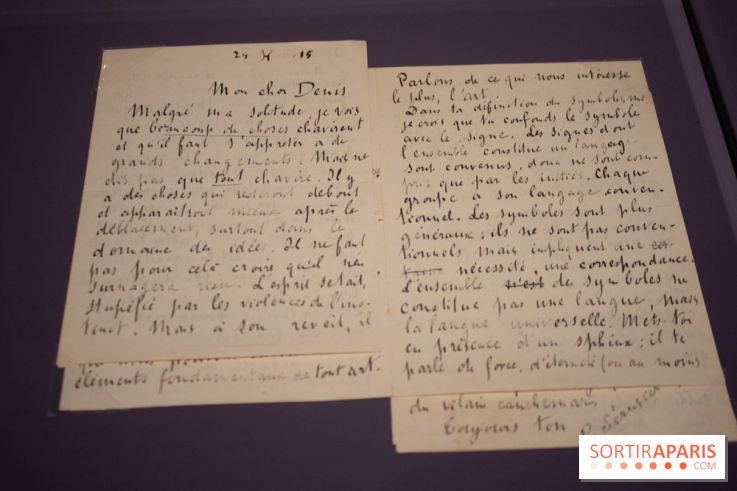 24 X 15
Mon cher Denis
Malgré ma solitude, je vois
que beaucoup de choses chavirent
et qu'il faut s'apprêter à de
grands changements. Mais ne
crois pas que tout chavire. Il y
a des choses qui resteront debout
et apparaîtront mieux après le
déblaiement, surtout dans le
domaine des idées. Il ne faut
pas pour celà croire qu'il ne
surnagera rien. L'esprit se tait,
stupéfié par les violences de l'ins-
tinct. Mais à son réveil, il
éléments fondamentaux de tout art.
Parlons de ce qui nous intéresse
le plus, l'art.
Dans ta définition du symbolisme,
je crois que tu confonds le symbole
avec le signe. Les signes dont
l'ensemble constitue un langage
sont convenus, donc ne sont com-
pris que par les initiés. Chaque
groupe a son langage conven-
tionnel. Les symboles sont plus
généraux; ils ne sont pas conven-
tionnels mais impliquent une
nécessité, une correspondance.
L'ensemble n'est des symboles ne
constitue pas une langue, mais
la langue universelle. Mets-toi
en présence d'un sphinx; il te
parle de force, d'éternité (ou au moins
du vilain cauchemar.
Toujours ton P. Sérusier
SORTIRAPARIS
.COM